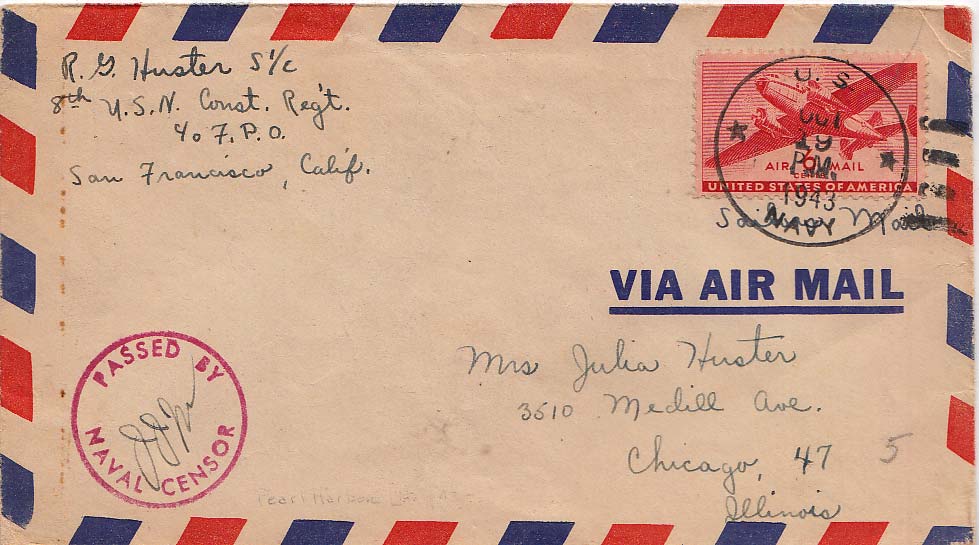 R. G. Huster S1/c
8th U.S.N. Const. Reg't.
c/o F.P.O.
San Francisco, Calif.
U. S.
OCT
19
P.M.
1943
NAVY
6
AIR MAIL
CENTS
UNITED STATES OF AMERICA
Mail
VIA AIR MAIL
Mrs Julia Huster
3510 Medill Ave.
Chicago, 47
5
Illinois
PASSED BY
NAVAL CENSOR
Pearl Harbor